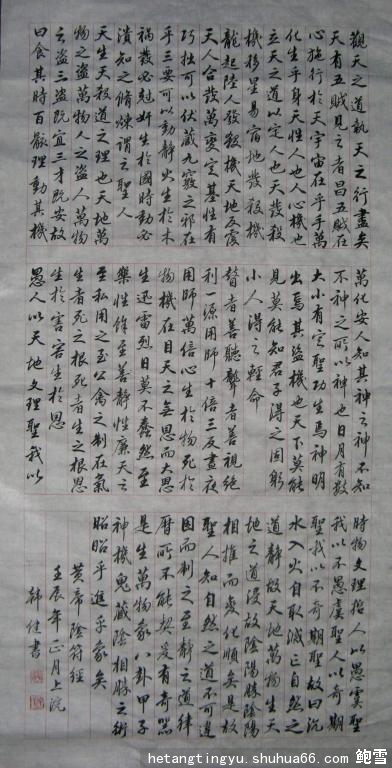 觀天之道執天之行盡矣
天有五賊見之者昌五賊在
心施行於天宇宙在乎手萬
化生乎身天性人也人心機也
立天之道以定人也天發殺
機移星易宿地發殺機
龍起陸人發殺機天地反覆
天人合發萬變定基性有
巧拙可以伏藏九竅之邪在
乎三要可以動靜火生於木
禍發必尅奸生於國時動必
潰知之脩煉謂之聖人
天生天殺道之理也天地萬
物之盜萬物人之盜人萬物
之盜三盜既宜三才既安故
曰食其時百骸理動其機
萬化安人知其神之神不知
不神之所以神也日月有數
大小有定聖功生焉神明
出焉其盜機也天下莫能
見莫能知君子得之固躬
小人得之輕命
瞽者善聽聾者善視絕
利一源用師十倍三反晝夜
用師萬倍心生於物死於
物機在目天之無恩而大恩
生迅雷烈日莫不蠢然至
樂性餘至善靜性廉天之
至私用之至公禽之制在氣
生者死之根死者生之根恩
生於害害生於恩
愚人以天地文理聖我以
時物文理哲人以愚虞聖
我以不愚虞聖人以奇期
聖我以不奇期聖故曰沉
水入火自取滅亡自然之
道靜故天地萬物生天
地之道浸故陰陽勝陰陽
相推而變化順矣是故
聖人知自然之道不可違
因而制之至靜之道律
曆所不能契爰有奇器
是生萬物象八卦甲子
神機鬼藏陰相勝之術
昭昭乎進乎象矣
黃帝陰符經
壬辰年正月上浣
韓佳書
hetangtingyu.shuhua66.com/鲍雪